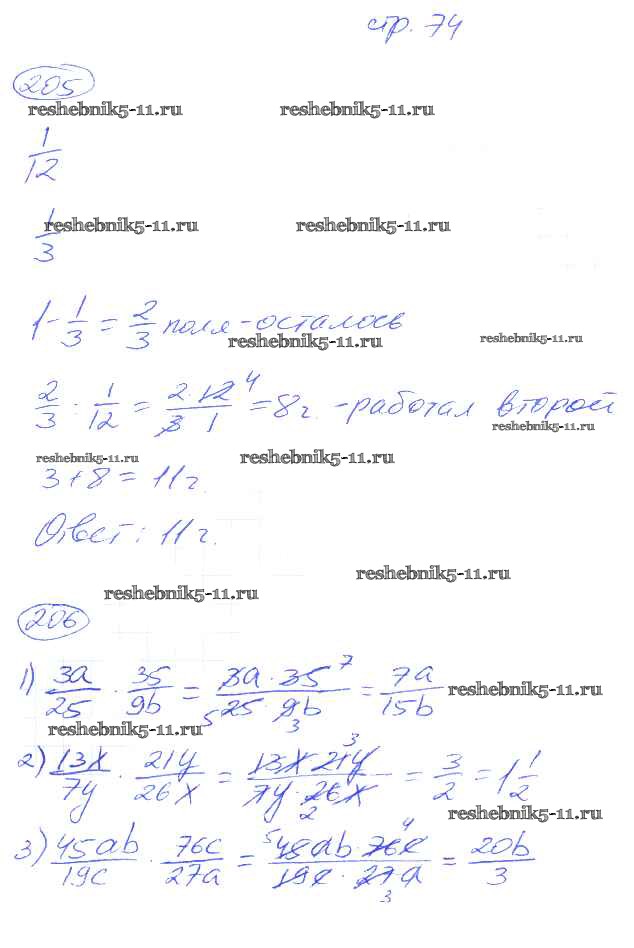 стр. 74
205
reshebnik5-11.ru reshebnik5-11.ru
1/12
1/3
reshebnik5-11.ru reshebnik5-11.ru
1 - 1/3 = 2/3 поля - осталось
reshebnik5-11.ru reshebnik5-11.ru
2/3 : 1/12 = 2·12 4/3 1 = 8 г. - работал второй
reshebnik5-11.ru
reshebnik5-11.ru reshebnik5-11.ru
3 + 8 = 11 г.
Ответ: 11 г.
reshebnik5-11.ru
reshebnik5-11.ru
206
1) 3a/25 · 35/9b = 3a · 35 7/5 25 · 9b 3 = 7a/15b
reshebnik5-11.ru
reshebnik5-11.ru
2) 13x/7y · 21y/26x = 13x 21y 3/7y · 26x 2 = 3/2 = 1 1/2
reshebnik5-11.ru
3) 45ab/19c · 76c/27a = 5 45ab · 76c 4/19c · 27a 3 = 20b/3